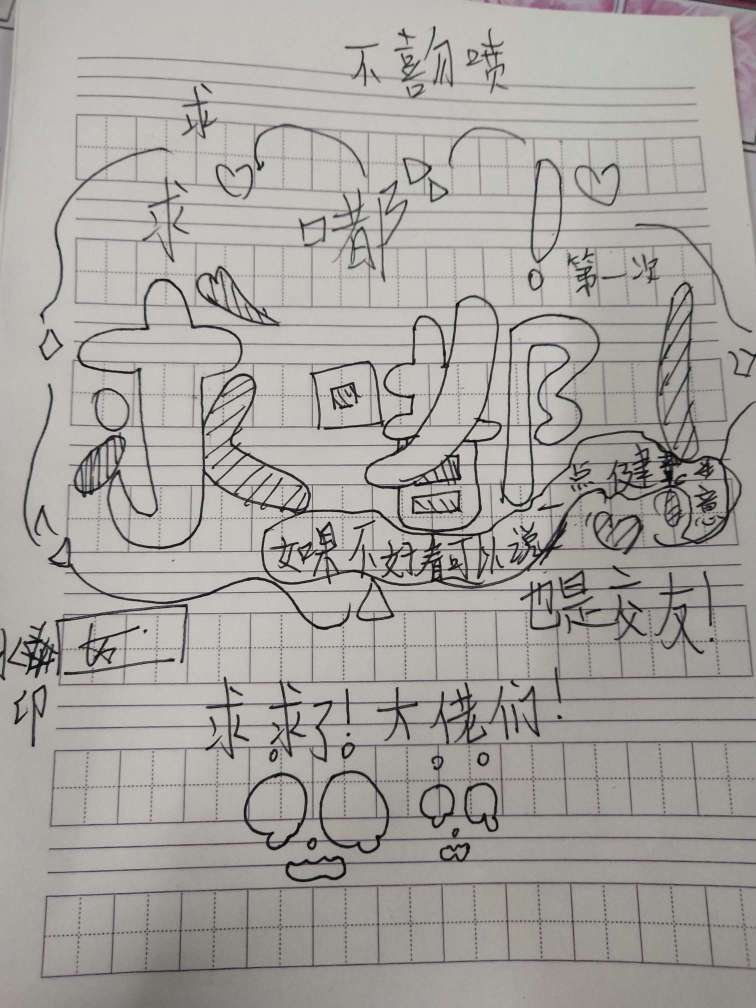 不喜勿喷
求
求 嘟 !
第一次
求嘟!
如果不好看可以说
一点建
意
也是交友!
印
求求了!大佬们!